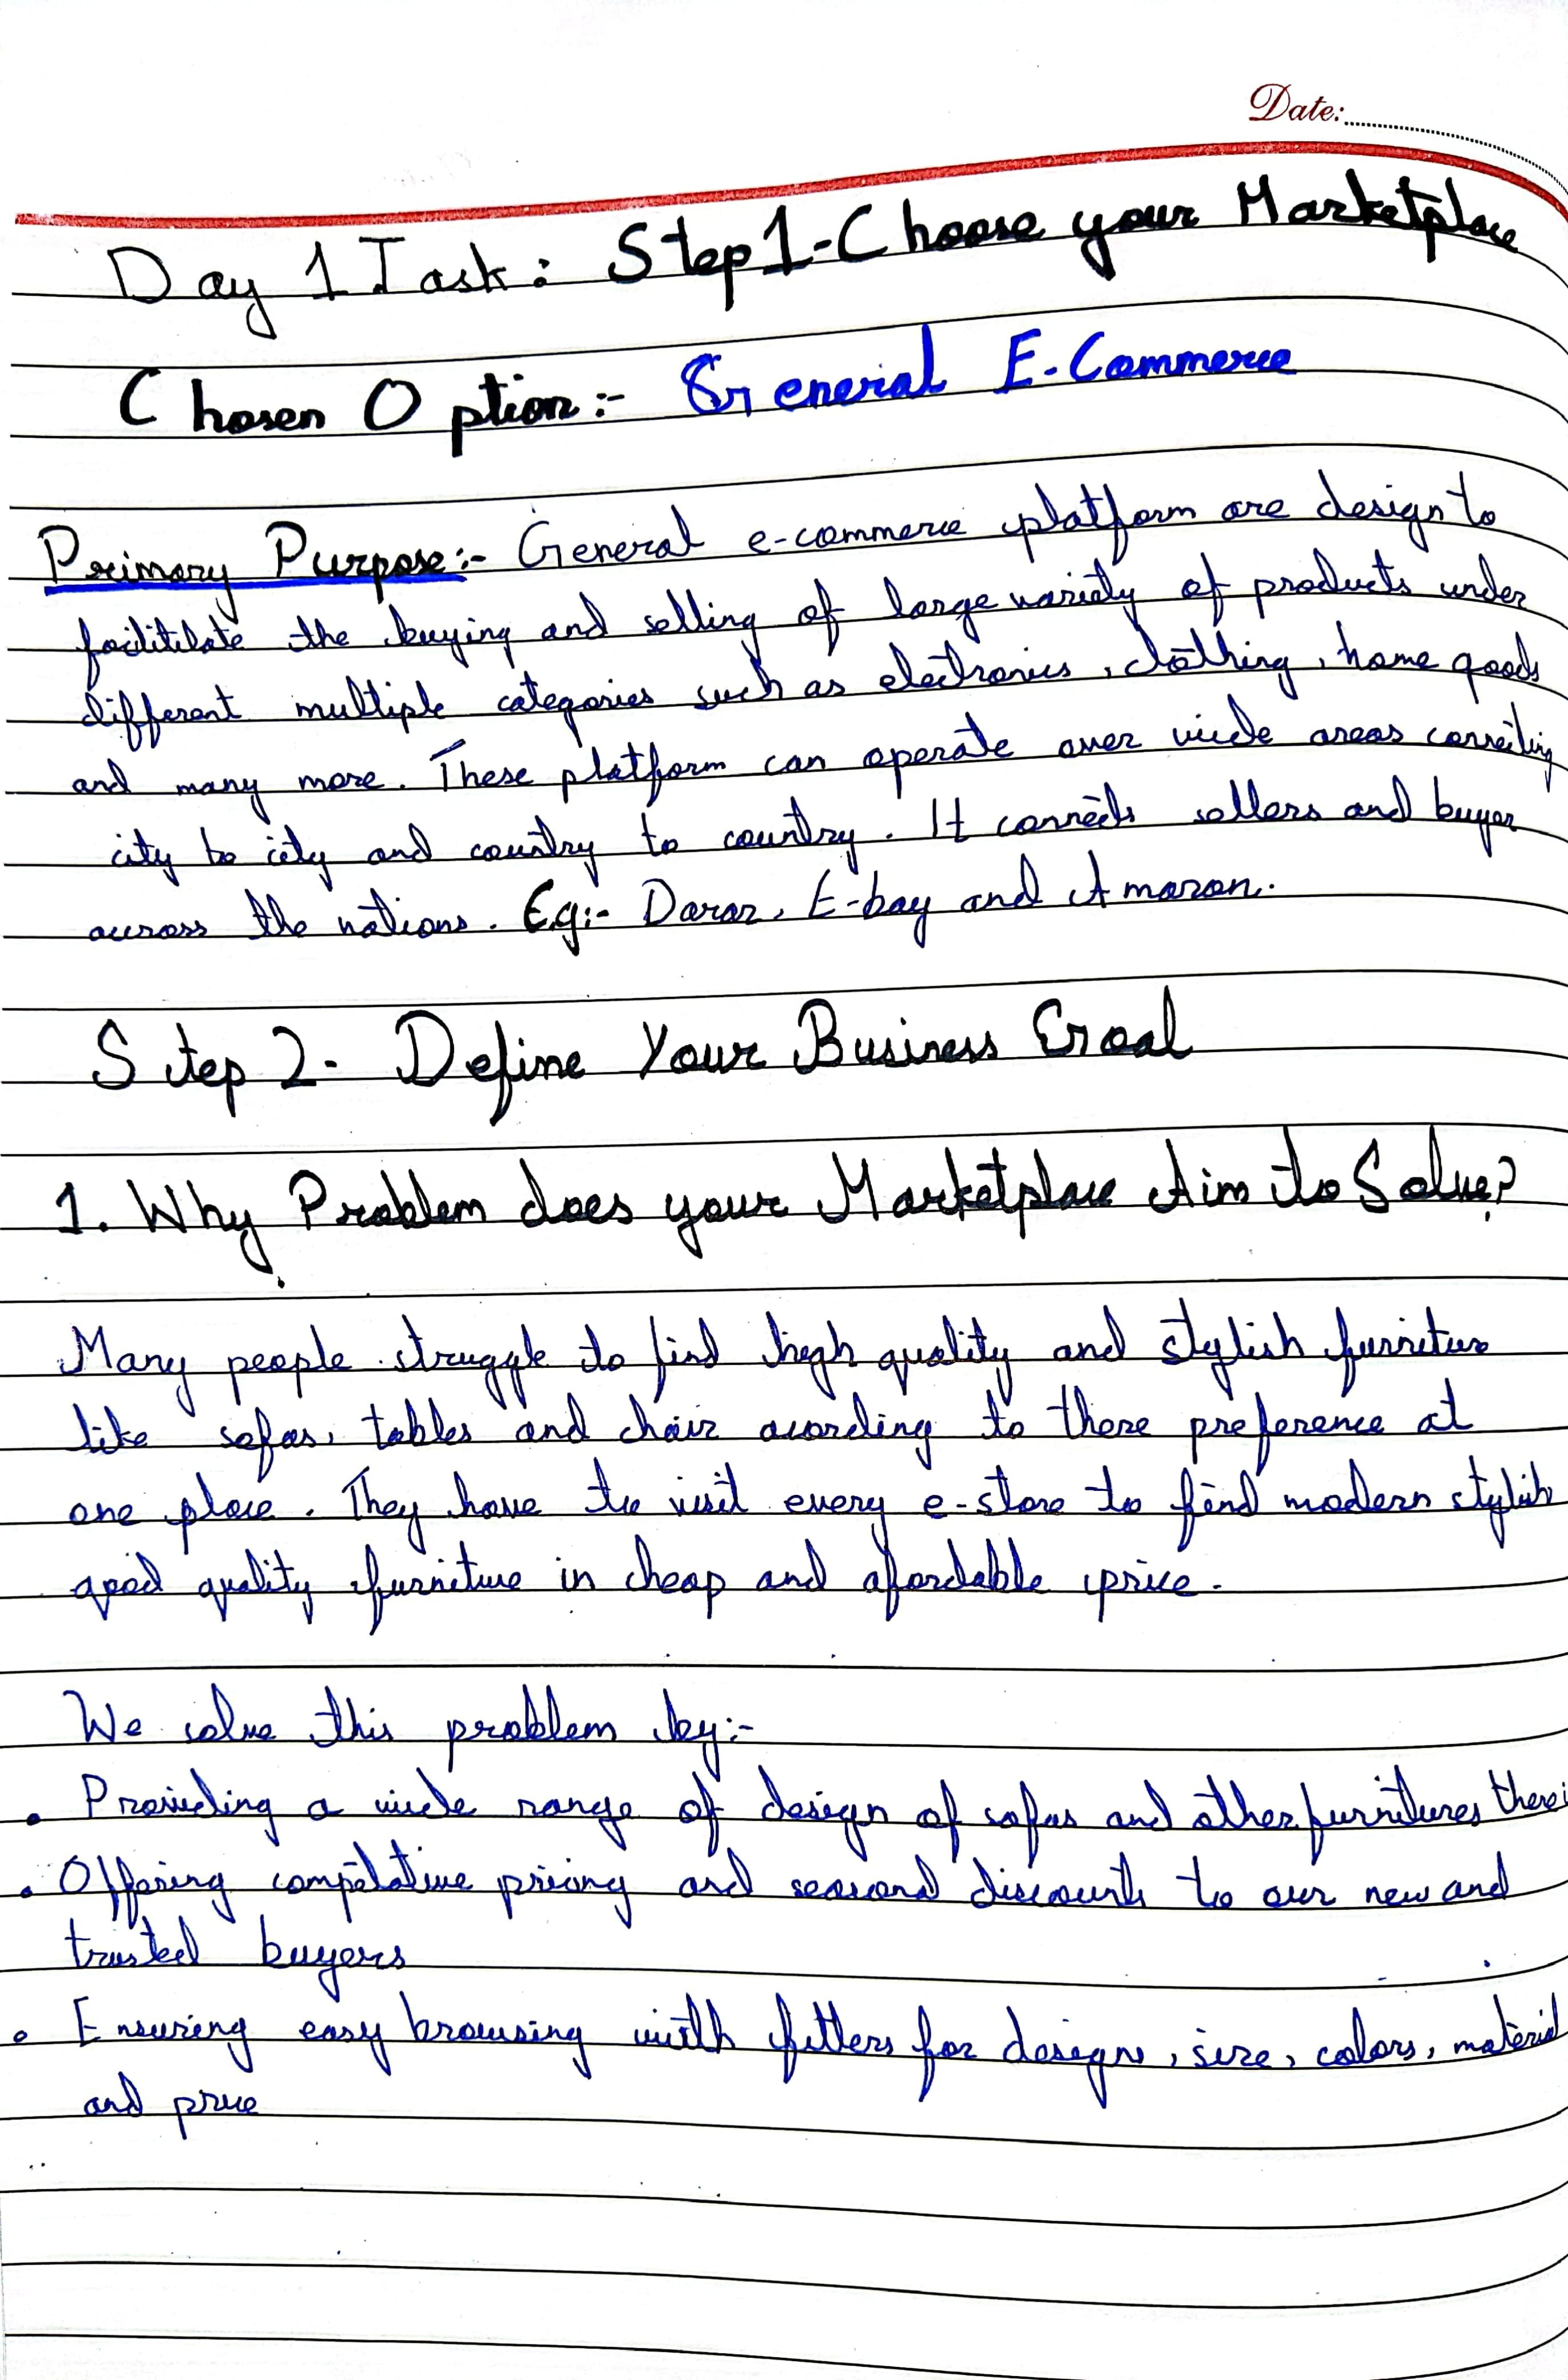 Date:
Day 1 Task: Step 1-Choose your Marketplace
Chosen Option:- General E-Commerce
Primary Purpose:- General e-commerce platform are design to
facilitilate the buying and selling of large variety of products under
different multiple categories such as electronics, clothing, home goods
and many more. These platform can operate over wide areas conneciting
city to city and country to country. It connects sellers and buyer
accross the nations. E.g:- Daraz, E-bay and Amazon.
Step 2- Define Your Business Goal
1. Why Problem does your Marketplace Aim to Solve?
Many people struggle to find high quality and stylish furniture
like sofas, tables and chair acording to there preference at
one place. They have to visit every e-store to find modern stylish
good quality furniture in cheap and afordable price.
We solve this problem by:-
• Providing a wide range of design of sofas and other furnitures there
• Offering competative pricing and seasonal discounts to our new and
trusted buyers
• Ensuring easy browsing with filters for designs, size, colors, material
and price